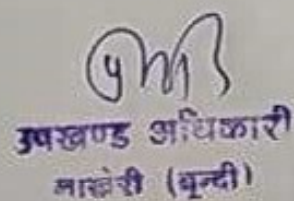 उपखण्ड अधिकारी
लाखेरी (बून्दी)